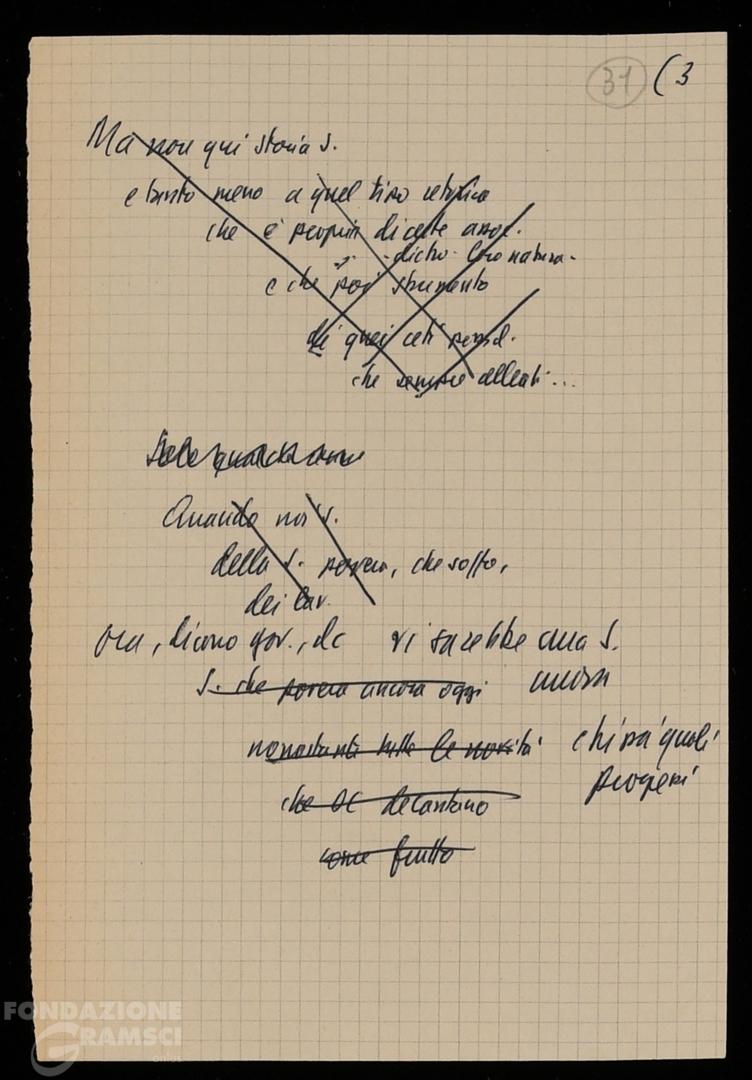 31 (3
Ma non qui storia S.
e tanto meno a quel tipo retorico
che è proprio di certe assoc.
dietro loro natura
e che poi strumento
di quei ceti
che sempre alleati...
Quando noi S.
della S. povera, che soffre,
dei lav.
Ora, dicono gov., dc vi sarebbe una S.
S. che povera ancora oggi nuova
nonostante tutte le novità chissà quali
che DC decantano progressi
come frutto
FONDAZIONE
GRAMSCI
onlus